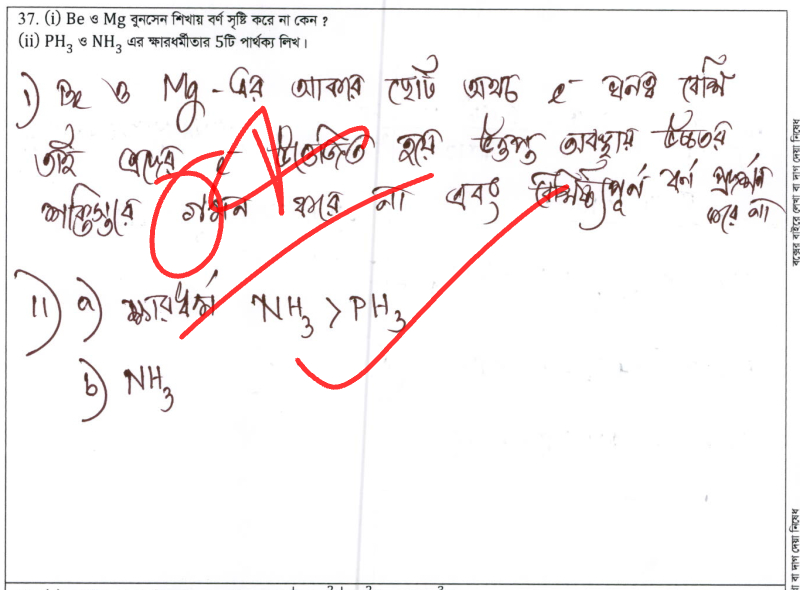 37. (i) Be ও Mg বুনসেন শিখায় বর্ণ সৃষ্টি করে না কেন ?
(ii) PH₃ ও NH₃ এর ক্ষারধর্মীতার 5টি পার্থক্য লিখ।
i) Be ও Mg -এর আকার ছোট অথচ e⁻ ঘনত্ব বেশি
তাই এদের e⁻ উত্তেজিত হয়ে উত্তপ্ত অবস্থায় উচ্চতর
শক্তিস্তরে গমন করে না এবং বৈশিষ্ট্যপূর্ণ বর্ণ প্রদর্শন
করে না
ii) a) ক্ষারধর্ম NH₃ > PH₃
b) NH₃
বক্সের বাইরে লেখা বা দাগ দেয়া নিষেধ
বা দাগ দেয়া নিষেধ